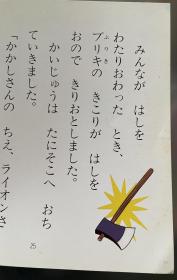 みんなが はしを
わたりおわった とき、
ブリキの きこりが はしを
おので きりおとしました。
かいじゅうは たにそこへ おち
ていきました。
「かかしさんの ちえ、ライオンさ
25